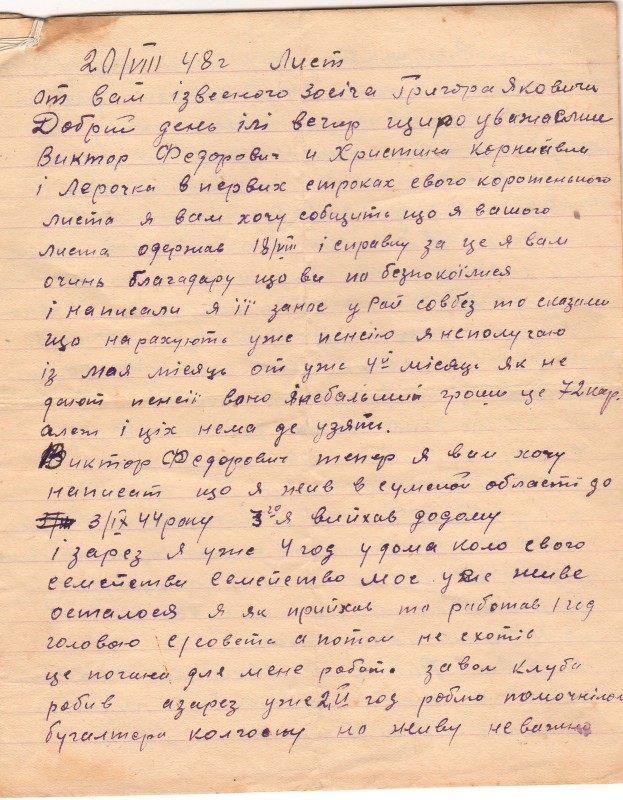 20/VIII 48 г Лист
от вам ізвесного Зосіча Григора Яковича
Добрий день ілі вечер щиро уважаємие
Виктор Федорович и Христина Корнийвна
і Лерочка в первих строках свого коротенького
листа я вам хочу собщить що я вашого
листа одержав 18/VIII і справку за це я вам
очинь благадару що ви по безпокоїлися
і написали я її занос у Рай совбез то сказали
що нарахують уже пенсію я неполучаю
із мая місяць от уже 4й місяць як не
дають пенсії воно й небальший гроши це 72 кар.
алеж і ціх нема де узяти.
Виктор Федорович тепер я вам хочу
написат що я жив в сумской області до
3/IX 44 року 3го я виїхав додому
і зарез я уже 4 год у дома коло свого
семейства Семейство мое уже живе
осталося я як приїхав то работав 1 год
головою с/совета а потом не схотів
це погана для мене работа завом клуба
робив а зарез уже 2й год роблю помочніком
бугалтера колгоспу но живу неважно